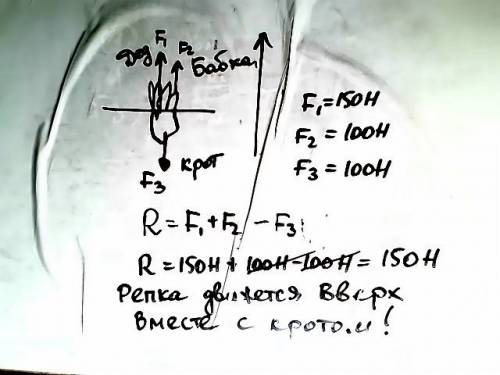 F₁
Дед
F₂
Бабка
крот
F₃
F₁=150Н
F₂=100Н
F₃=100Н
R=F₁+F₂-F₃
R=150Н+100Н-100Н=150Н
Репка движется вверх
вместе с кротом!